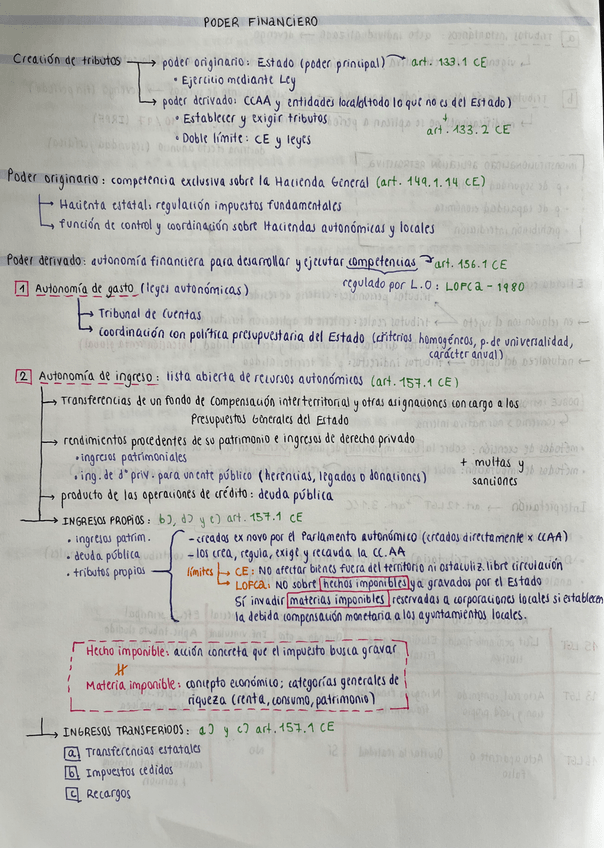 PODER FINANCIERO
Creación de tributos → poder originario: Estado (poder principal) → art. 133.1 CE
• Ejercicio mediante Ley
→ poder derivado: CCAA y entidades local(todo lo que no es del Estado)
• Establecer y exigir tributos
• Doble límite: CE y leyes
art. 133.2 CE
Poder originario: competencia exclusiva sobre la Hacienda General (art. 149.1.14 CE)
→ Hacienta estatal: regulación impuestos fundamentales
→ función de control y coordinación sobre Haciendas autonómicas y locales
Poder derivado: autonomía financiera para desarrollar y ejecutar competencias → art. 156.1 CE
regulado por L.O: LOFCA - 1980
1 Autonomía de gasto (leyes autonómicas)
→ Tribunal de Cuentas
→ coordinación con política presupuestaria del Estado (criterios homogéneos, p. de universalidad,
carácter anual)
2 Autonomía de ingreso: lista abierta de recursos autonómicos (art. 157.1 CE)
→ Transferencias de un fondo de compensación interterritorial y otras asignaciones con cargo a los
Presupuestos Generales del Estado
→ rendimientos procedentes de su patrimonio e ingresos de derecho privado
• ingresos patrimoniales
• ing. de dº priv. para un ente público (herencias, legados o donaciones)
+ multas y
sanciones
→ producto de las operaciones de crédito: deuda pública
→ INGRESOS PROPIOS: b), d) y e) art. 157.1 CE
• ingresos patrim.
• deuda pública
• tributos propios
- creados ex novo por el Parlamento autonómico (creados directamente x CCAA)
- los crea, regula, exige y recauda la CC.AA
límites → CE: NO afectar bienes fuera del territorio ni ostaculiz. libre circulación
→ LOFCA: NO sobre hechos imponibles ya gravados por el Estado
Sí invadir materias imponibles reservadas a corporaciones locales si establecen
la debida compensación monetaria a los ayuntamientos locales.
Hecho imponible: acción concreta que el impuesto busca gravar
Materia imponible: concepto económico; categorías generales de
riqueza (renta, consumo, patrimonio)
→ INGRESOS TRANSFERIDOS: a) y c) art. 157.1 CE
a Transferencias estatales
b Impuestos cedidos
c Recargos